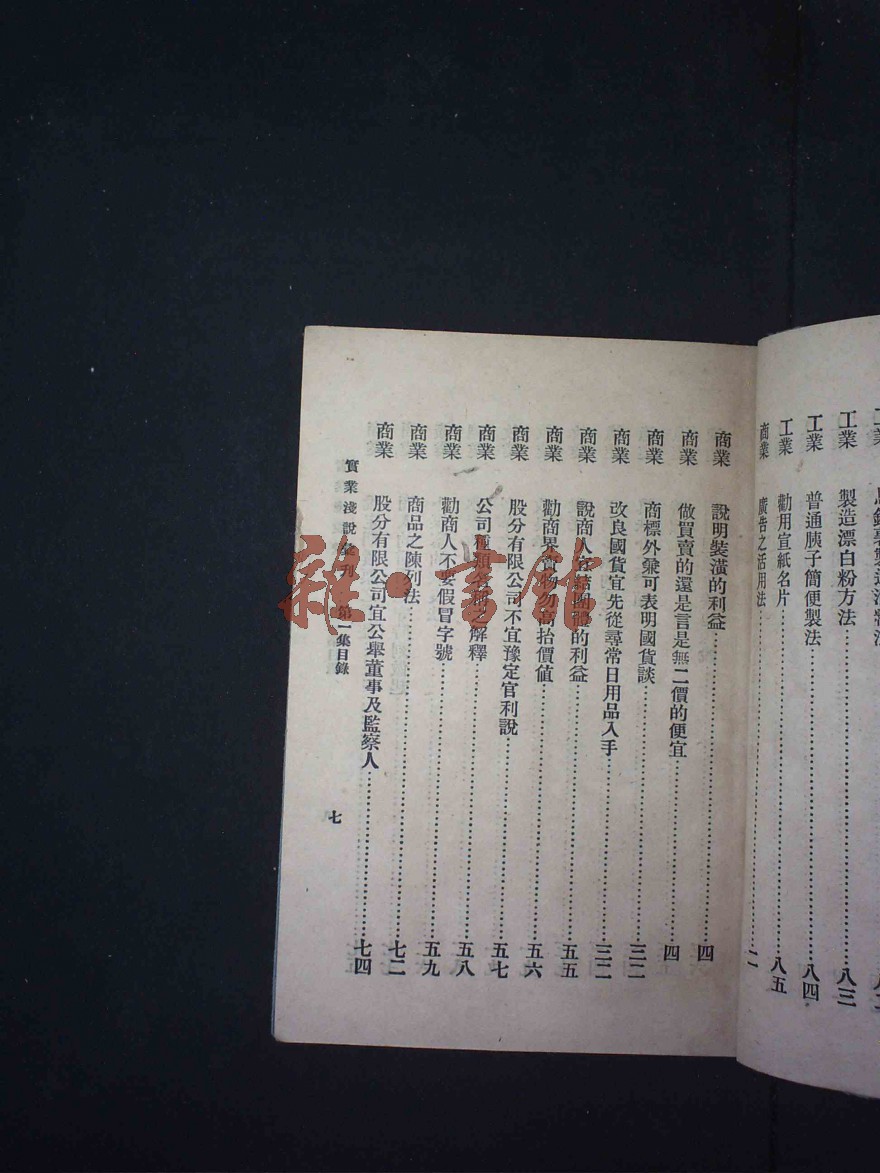 工業
工業 製造漂白粉方法 八三
工業 普通胰子簡便製法 八四
工業 勸用宣紙名片 八五
商業 廣告之活用法 二
商業 說明裝潢的利益 四
商業 做買賣的還是言是無二價的便宜 四
商業 商標外兼可表明國貨談 三二
商業 改良國貨宜先從尋常日用品入手 三二
商業 說商人宜結團體的利益 五五
商業 勸商界賣物勿高抬價値 五六
商業 股分有限公司不宜豫定官利說 五七
商業 公司種類名稱之解釋 五八
商業 勸商人不要假冒字號 五九
商業 商品之陳列法 七二
商業 股分有限公司宜公舉董事及監察人 七四
實業淺說彙刊 第一集目錄 七
雜·書館